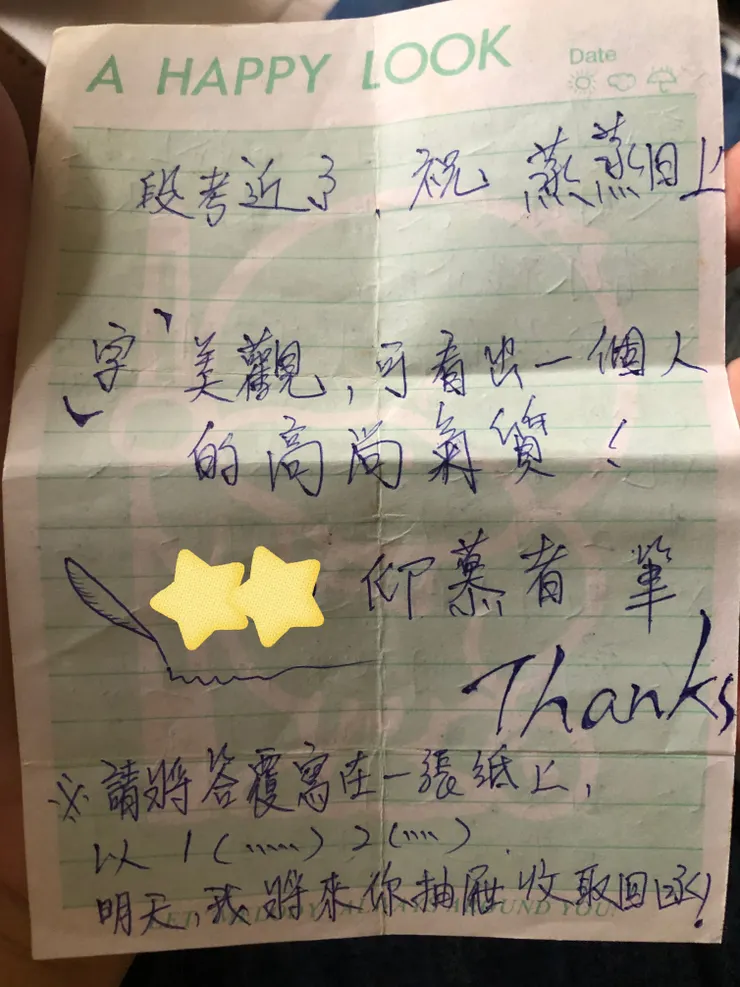 A HAPPY LOOK
Date
段考近了,祝 蒸蒸日上
「字」美觀,可看出一個人
的高尚氣質!
仰慕者 筆
Thanks
※請將答覆寫在一張紙上,
以 1(……) 2(……).
明天,我將來你抽屜收取回函!